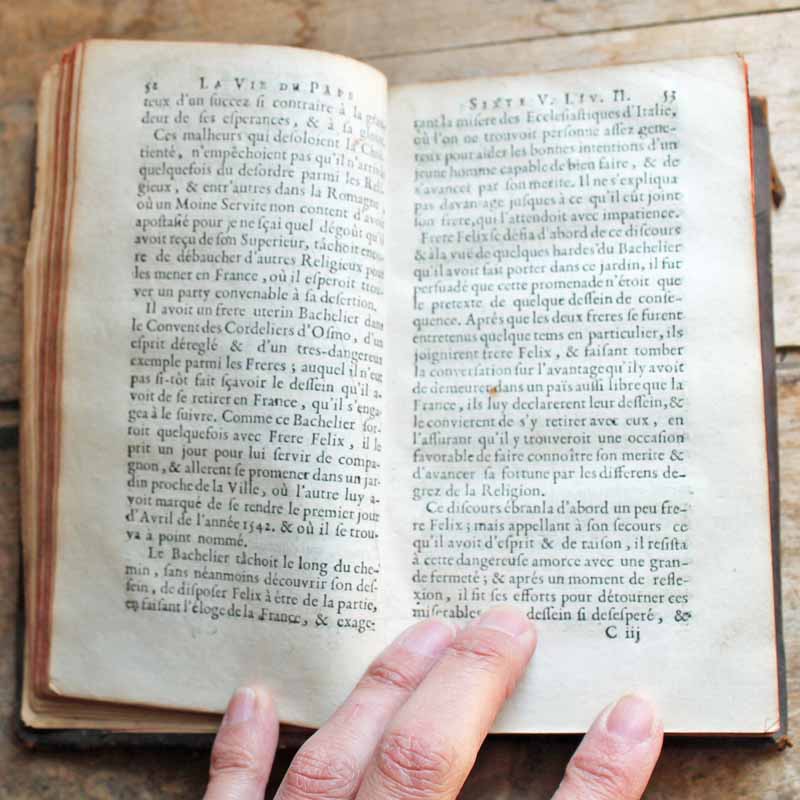 52 LA VIE DU PAPE
teux d'un succez si contraire à la gran-
deur de ses esperances, & à sa gloire.
Ces malheurs qui desoloient la Chré-
tienté, n'empêchoient pas qu'il n'arrivât
quelquefois du desordre parmi les Reli-
gieux, & entr'autres dans la Romagne,
où un Moine Servite non content d'avoir
apostasié pour je ne sçai quel dégoût qu'il
avoit reçu de son Superieur, tâchoit enco-
re de débaucher d'autres Religieux pour
les mener en France, où il esperoit trou-
ver un party convenable à sa desertion.
Il avoit un frere uterin Bachelier dans
le Convent des Cordeliers d'Osmo, d'un
esprit déreglé & d'un tres-dangereux
exemple parmi les Freres; auquel il n'eut
pas si-tôt fait sçavoir le dessein qu'il a-
voit de se retirer en France, qu'il s'enga-
gea à le suivre. Comme ce Bachelier sor-
toit quelquefois avec Frere Felix, il le
prit un jour pour lui servir de compa-
gnon, & allerent se promener dans un jar-
din proche de la Ville, où l'autre luy a-
voit marqué de se rendre le premier jour
d'Avril de l'année 1542. & où il se trou-
va à point nommé.
Le Bachelier tâchoit le long du che-
min, sans néanmoins découvrir son des-
sein, de disposer Felix à être de la partie,
en faisant l'éloge de la France, & exage-
SIXTE V. LIV. II. 53
rant la misere des Ecclesiastiques d'Italie,
où l'on ne trouvoit personne assez gene-
reux pour aider les bonnes intentions d'un
jeune homme capable de bien faire, & de
s'avancer par son merite. Il ne s'expliqua
pas davantage jusques à ce qu'il eût joint
son frere, qui l'attendoit avec impatience.
Frere Felix se defia d'abord de ce discours
& à la vûë de quelques hardes du Bachelier
qu'il avoit fait porter dans ce jardin, il fut
persuadé que cette promenade n'étoit que
le pretexte de quelque dessein de conse-
quence. Aprés que les deux freres se furent
entretenus quelque tems en particulier, ils
joignirent frere Felix, & faisant tomber
la conversation sur l'avantage qu'il y avoit
de demeurer dans un païs aussi libre que la
France, ils luy declarerent leur dessein, &
le convierent de s'y retirer avec eux, en
l'assurant qu'il y trouveroit une occasion
favorable de faire connoître son merite &
d'avancer sa fortune par les differens de-
grez de la Religion.
Ce discours ébranla d'abord un peu fre-
re Felix; mais appellant à son secours ce
qu'il avoit d'esprit & de raison, il resista
à cette dangereuse amorce avec une gran-
de fermeté; & aprés un moment de refle-
xion, il fit ses efforts pour détourner ces
miserables dessein si desesperé, &
C iij